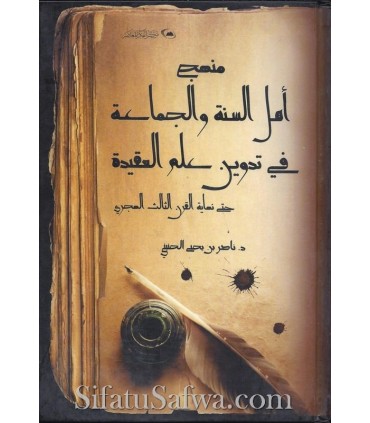 منهج
أهل السنة والجماعة
في تدوين علم العقيدة
حتى نهاية القرن الثالث الهجري
د. ناصر بن يحيى الحنيني
SifatuSafwa.com